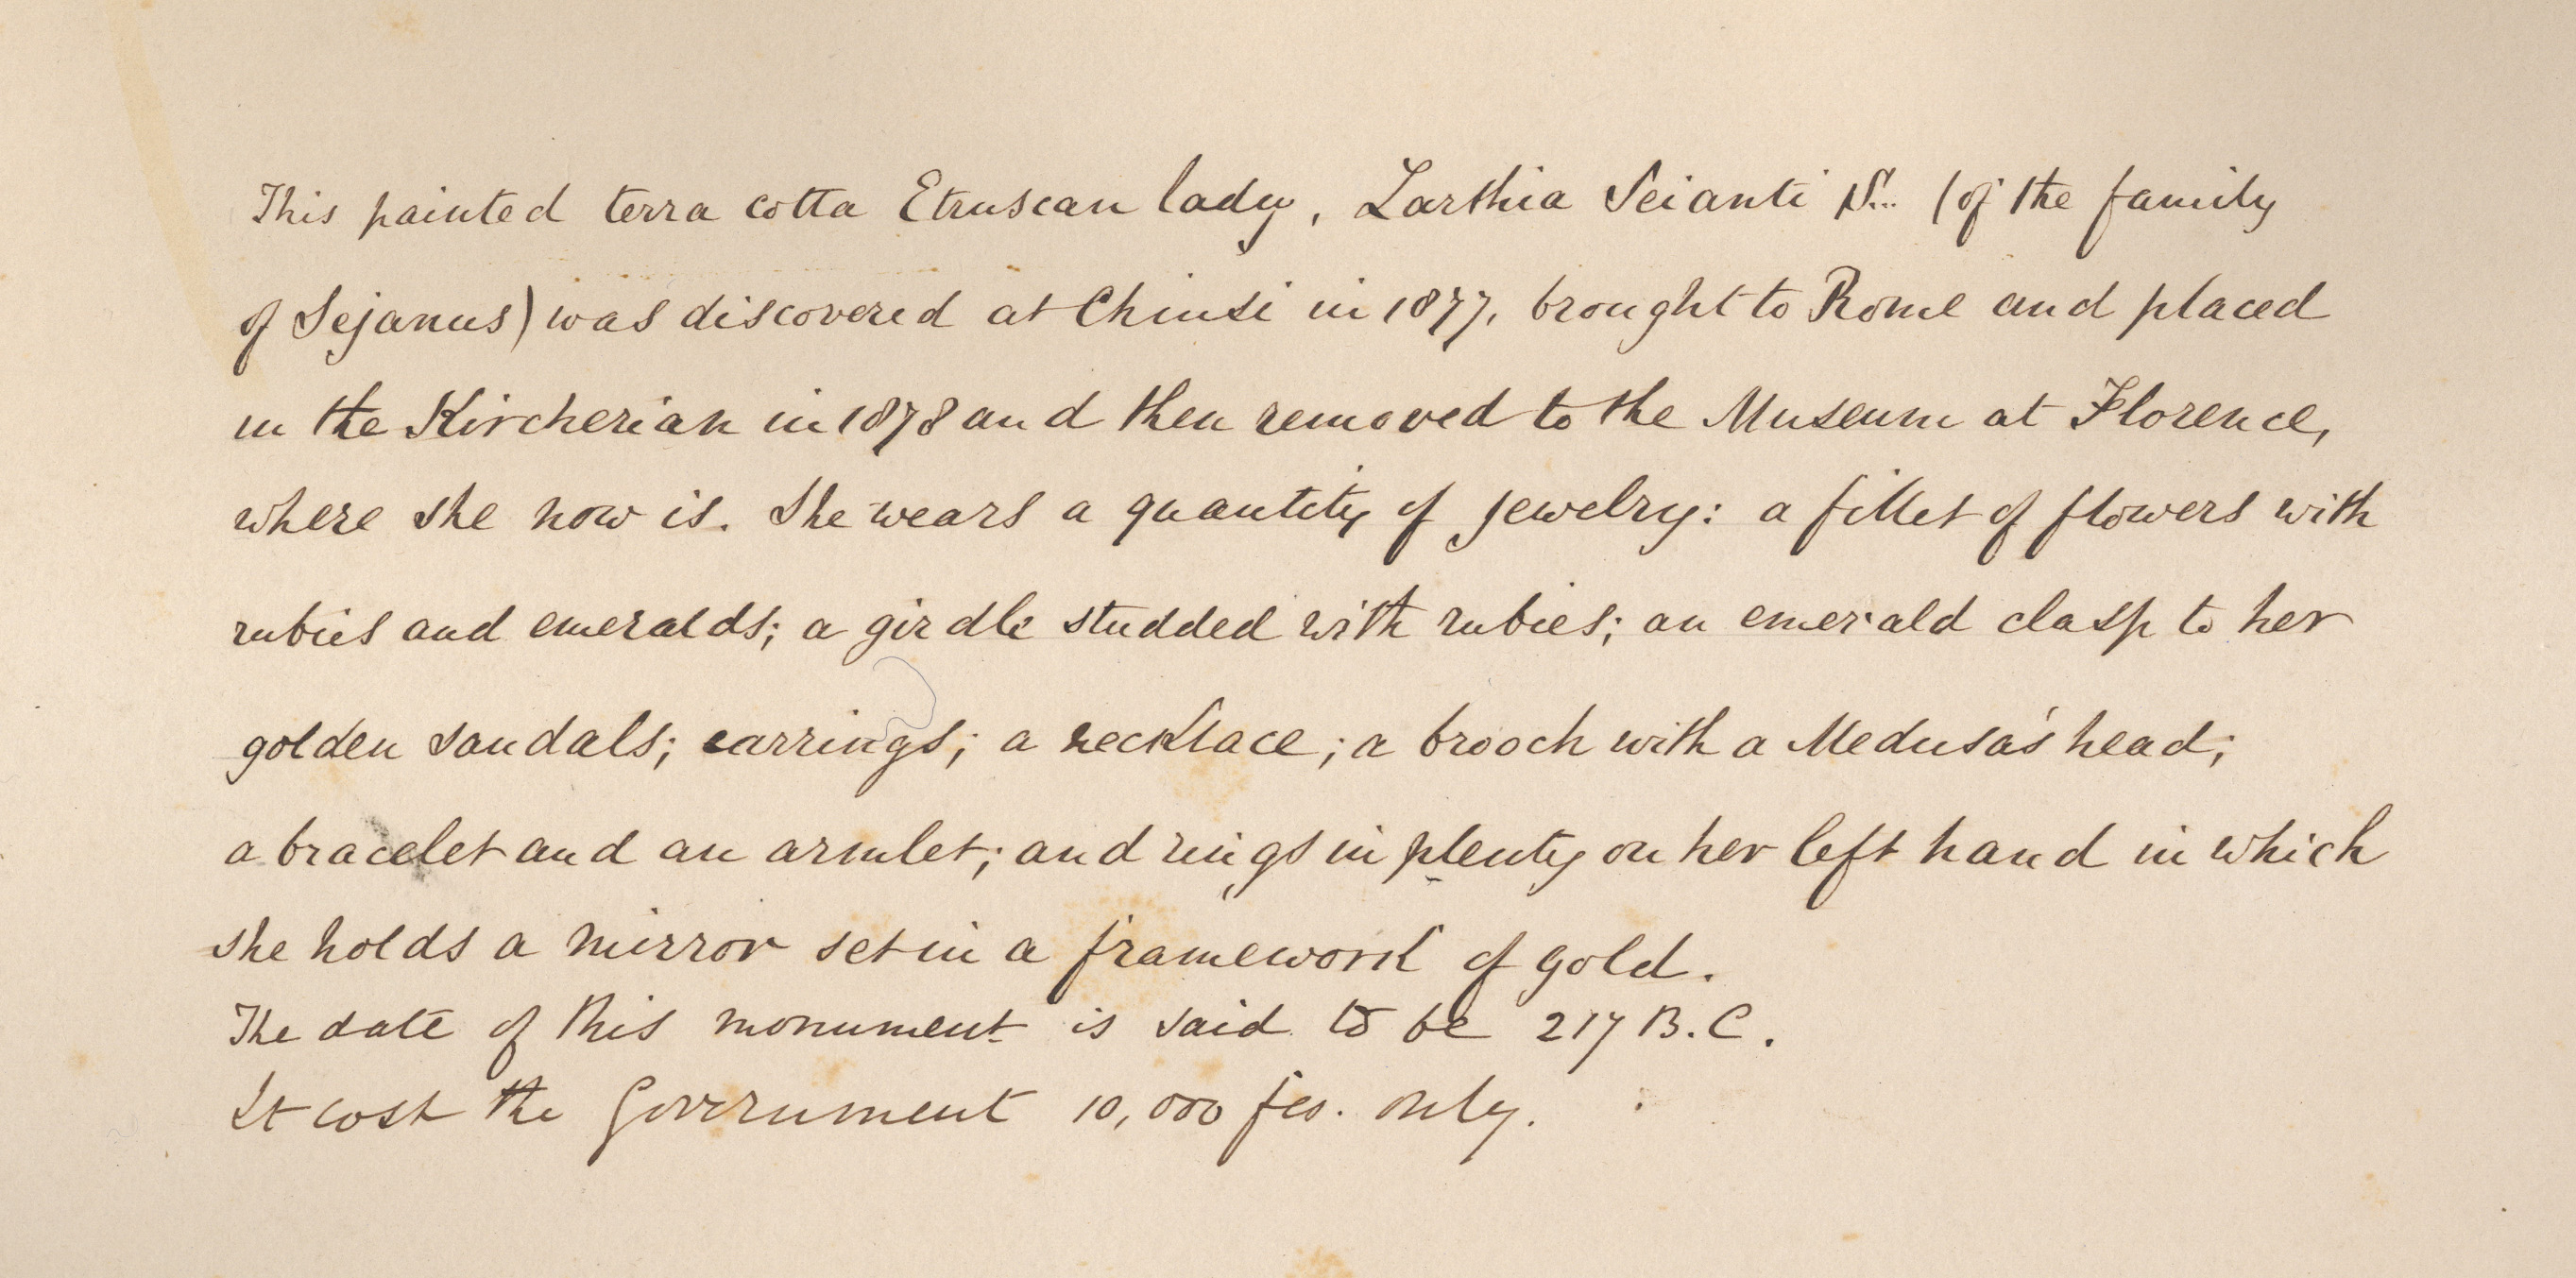 This painted terra cotta Etruscan lady, Larthia Seianti S... (of the family
of Sejanus) was discovered at Chiusi in 1877, brought to Rome and placed
in the Kircherian in 1878 and then removed to the Museum at Florence,
where she now is. She wears a quantity of jewelry: a fillet of flowers with
rubies and emeralds; a girdle studded with rubies; an emerald clasp to her
golden sandals; earrings; a necklace; a brooch with a Medusa's head;
a bracelet and an armlet; and rings in plenty on her left hand in which
she holds a mirror set in a framework of gold.
The date of this monument is said to be 217 B.C.
It cost the Government 10,000 fcs. only.